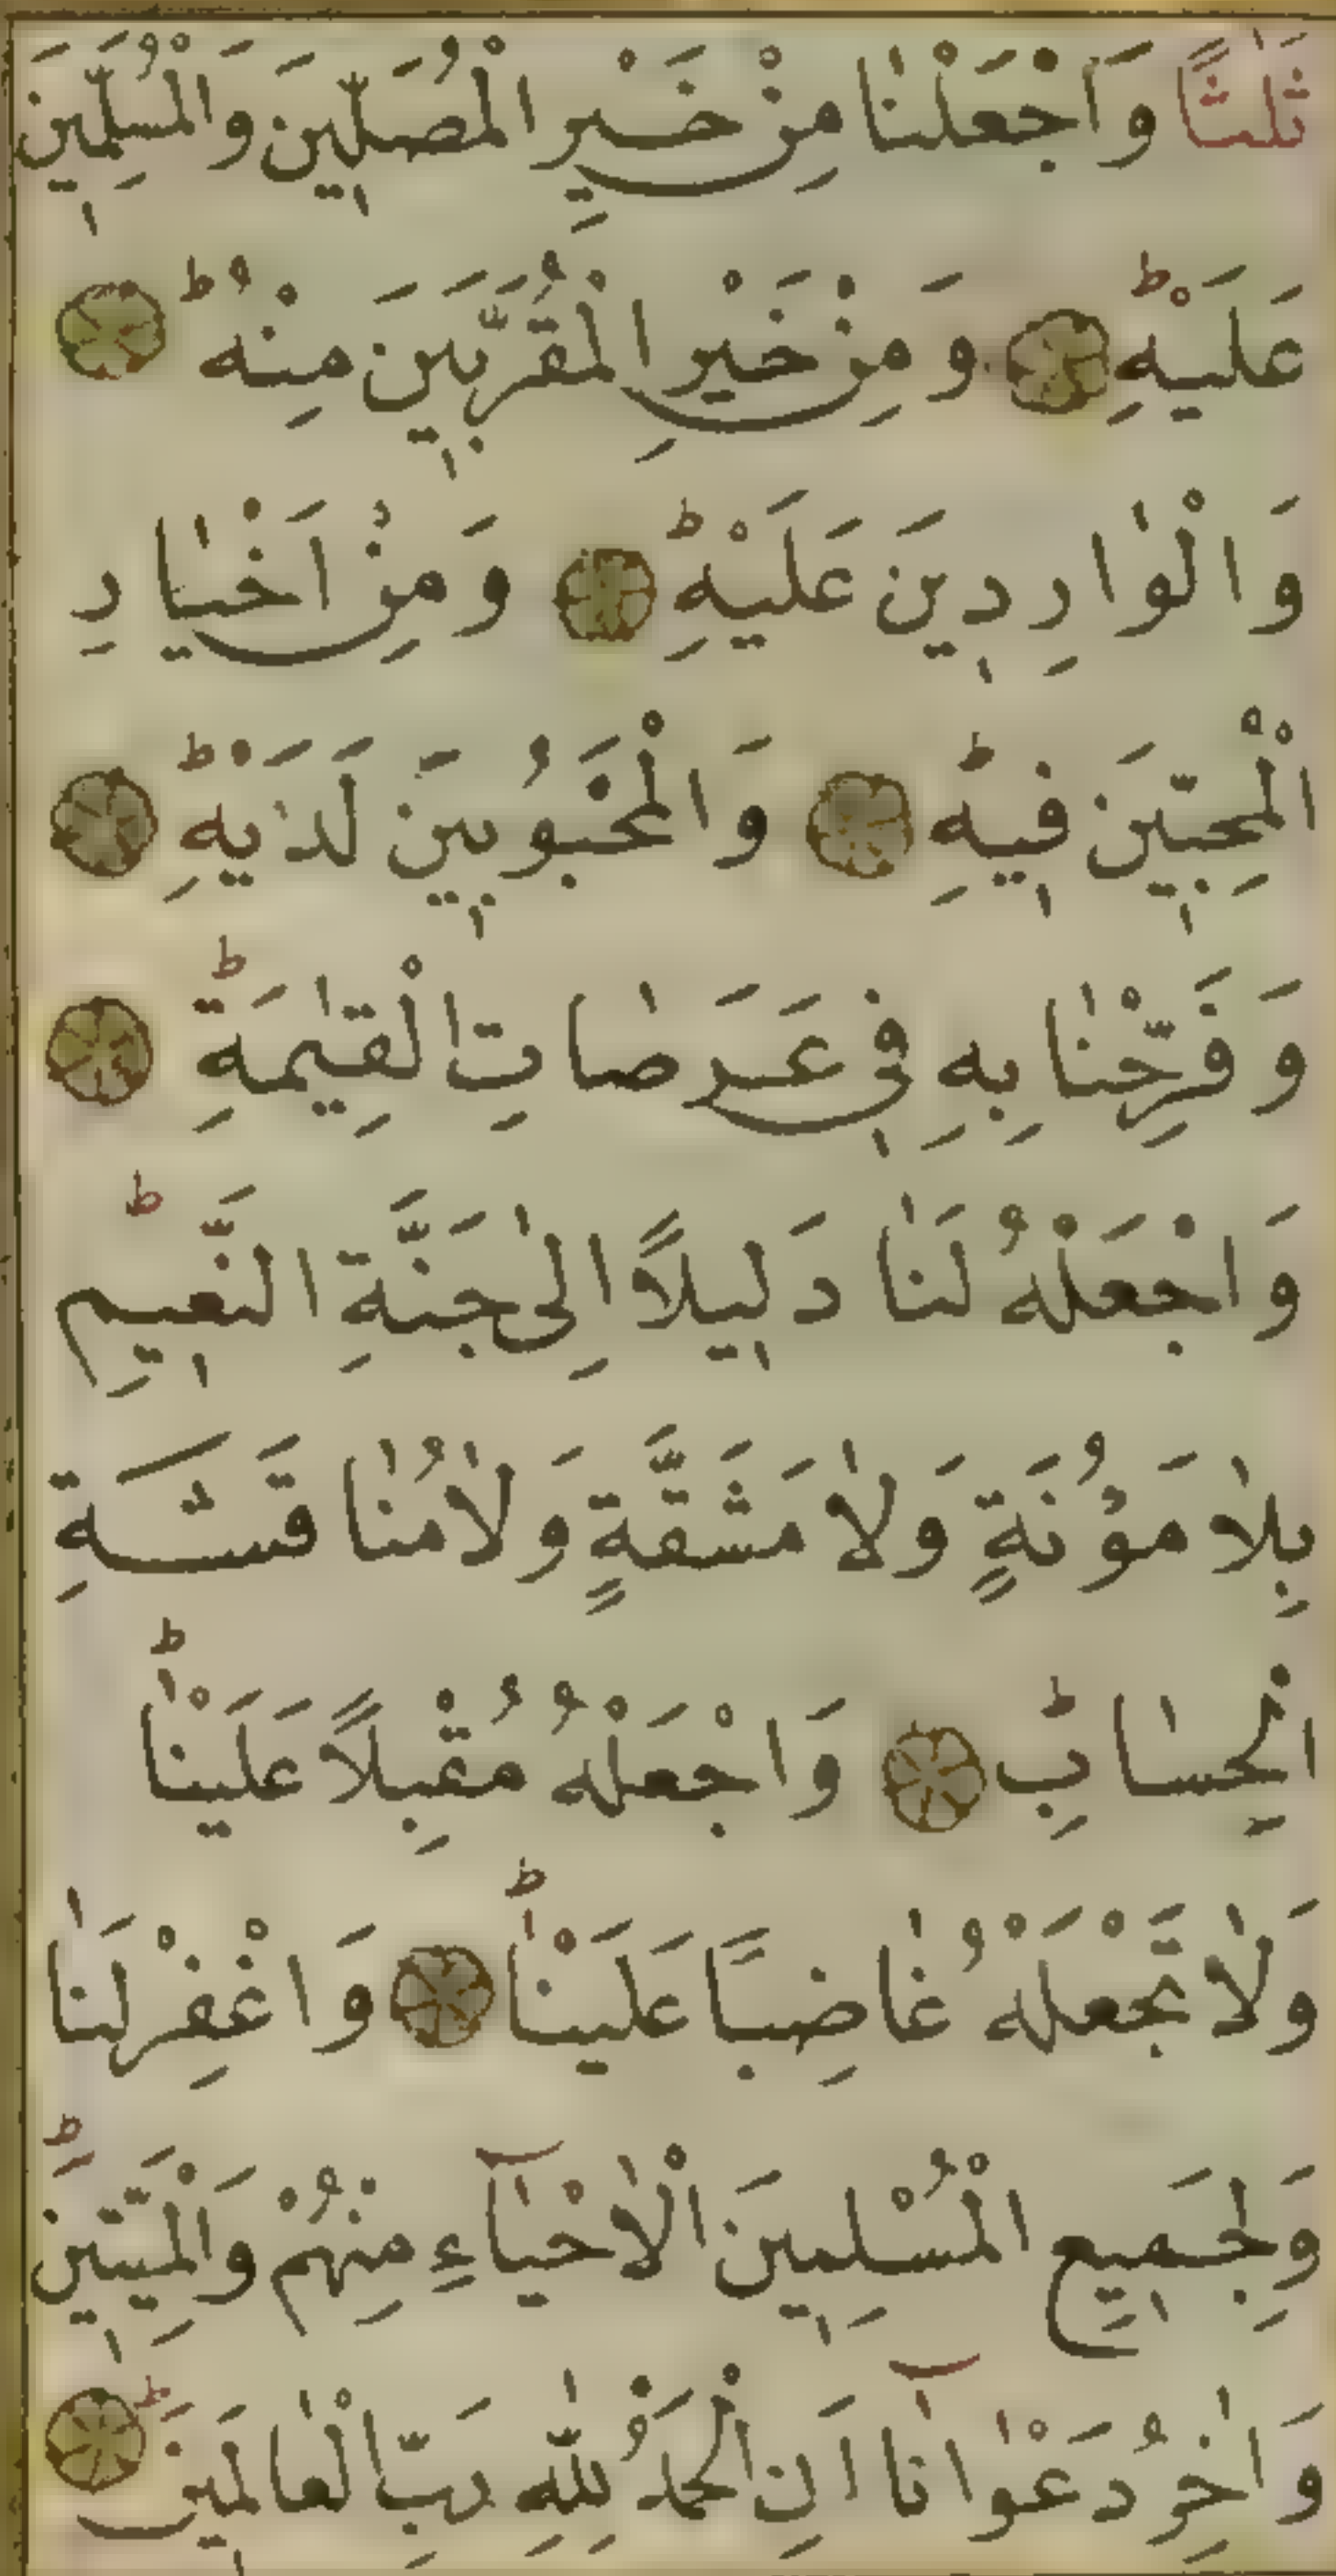 ثَلٰثًا وَاجْعَلْنَا مِنْ خَيْرِ الْمُصَلِّينَ وَالْمُسَلِّمِينَ
عَلَيْهِ ۝ وَمِنْ خَيْرِ الْمُقَرَّبِينَ مِنْهُ ۝
وَالْوَارِدِينَ عَلَيْهِ ۝ وَمِنْ اَخْيَارِ
الْمُحِبِّينَ فِيهِ ۝ وَالْمَحْبُوبِينَ لَدَيْهِ ۝
وَفَرِّحْنَا بِهِ فِي عَرَصَاتِ الْقِيٰمَةِ ۝
وَاجْعَلْهُ لَنَا دَلِيلًا اِلٰى جَنَّةِ النَّعِيمِ
بِلَا مَؤُنَةٍ وَلَا مَشَقَّةٍ وَلَا مُنَاقَشَةِ
الْحِسَابِ ۝ وَاجْعَلْهُ مُقْبِلًا عَلَيْنَا
وَلَا تَجْعَلْهُ غَاضِبًا عَلَيْنَا ۝ وَاغْفِرْ لَنَا
وَلِجَمِيعِ الْمُسْلِمِينَ الْاَحْيَآءِ مِنْهُمْ وَالْمَيِّتِينَ
وَاٰخِرُ دَعْوَانَآ اَنِ الْحَمْدُ لِلّٰهِ رَبِّ الْعَالَمِينَ ۝